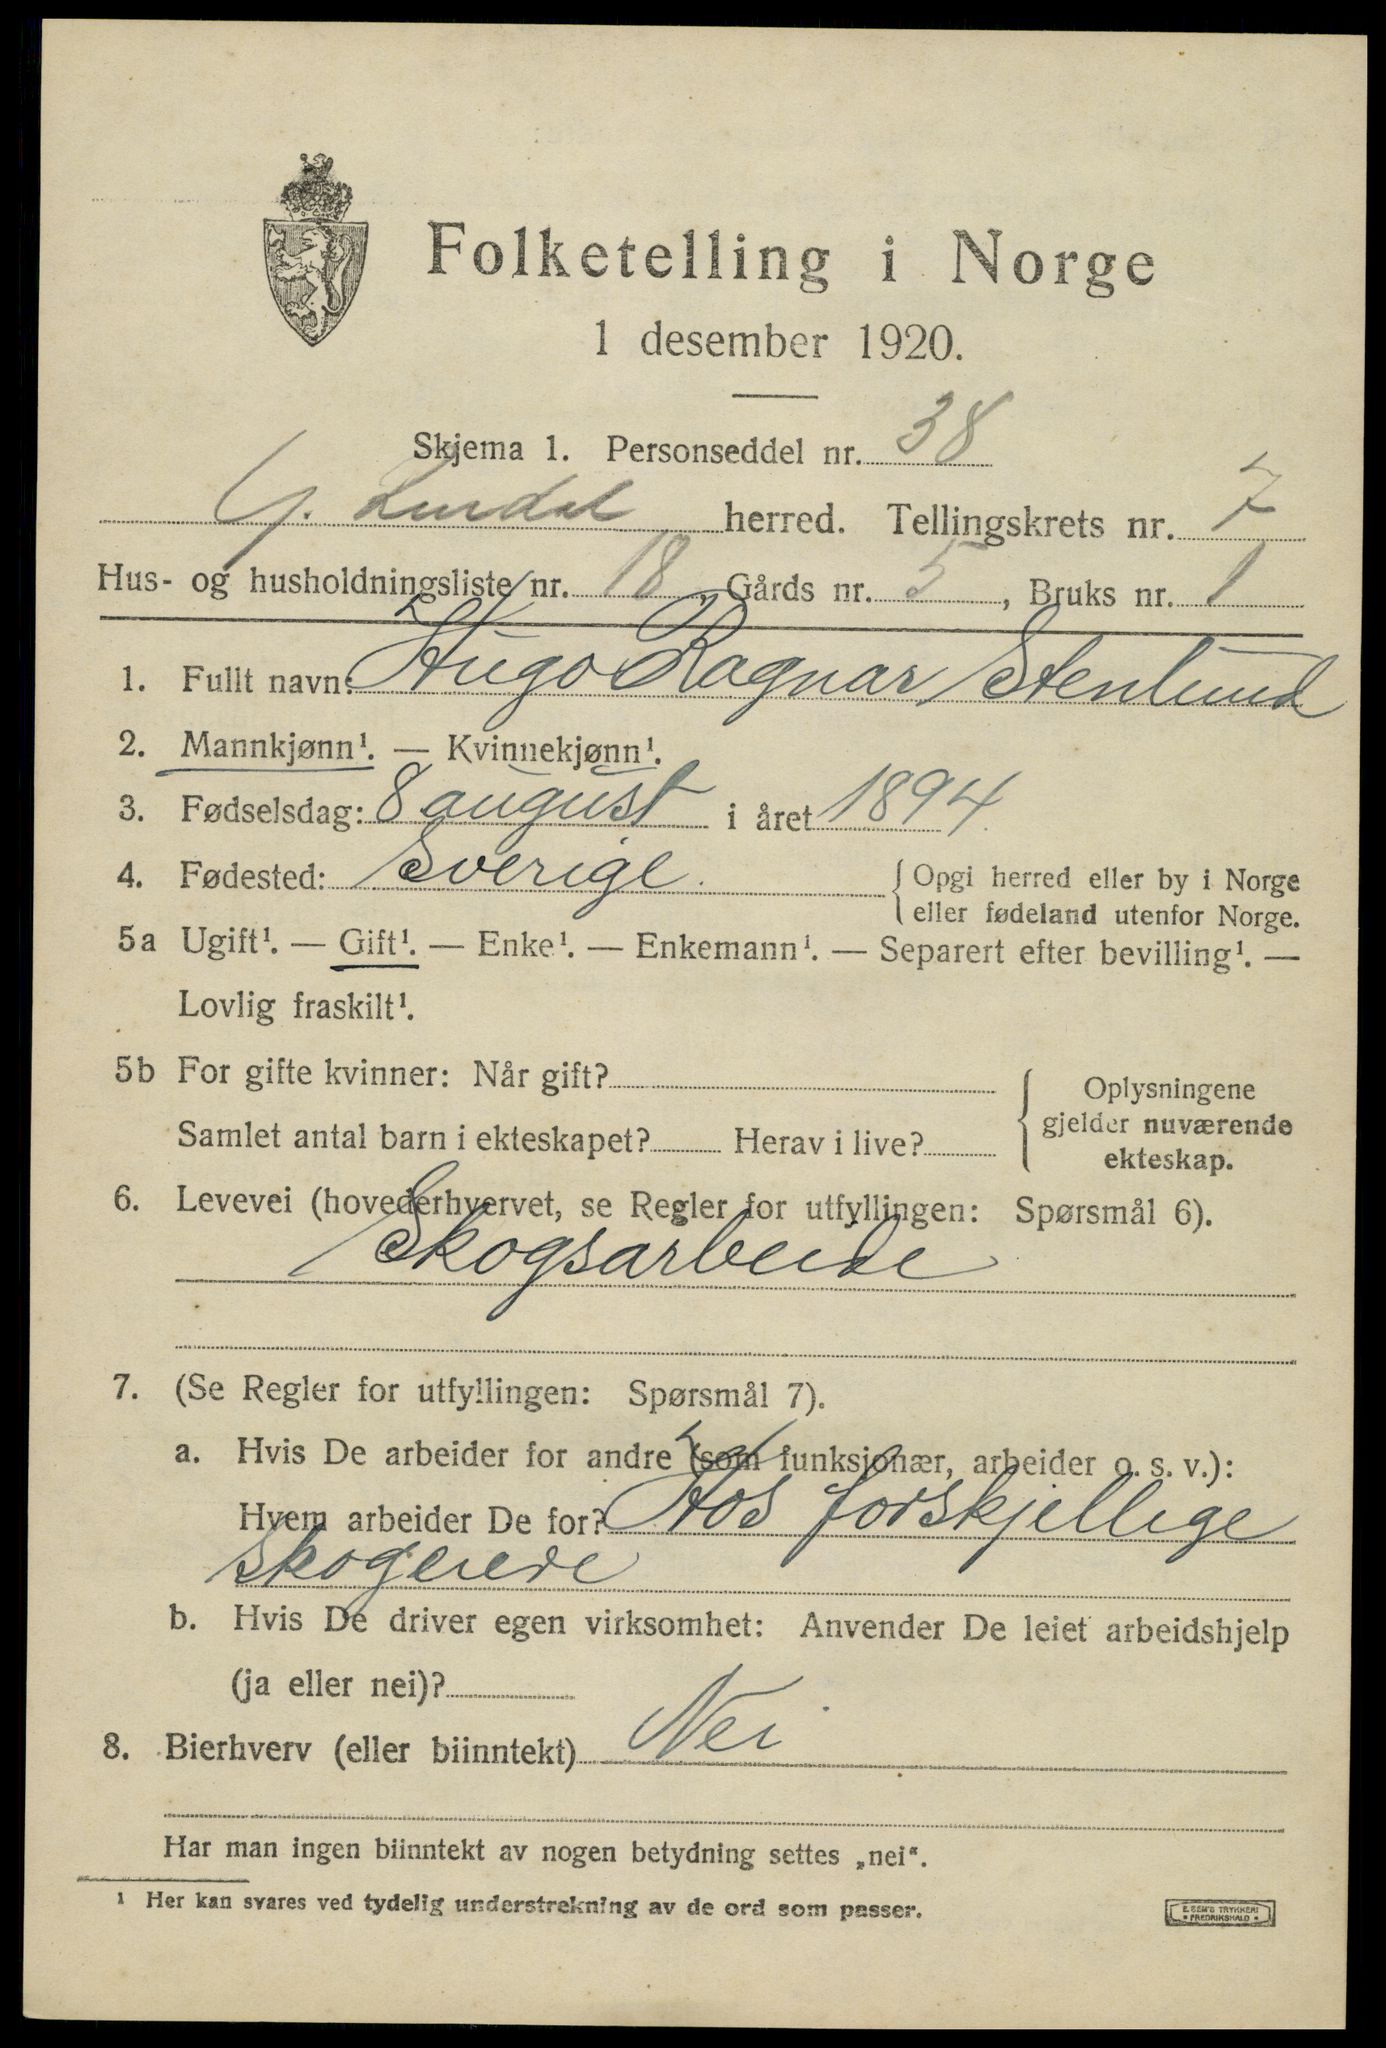 Folketelling i Norge
1 desember 1920.
Skjema 1. Personseddel nr. 38
G. Lurdal herred. Tellingskrets nr. 7
Hus- og husholdningsliste nr. 18, Gårds nr. 5, Bruks nr. 1
1. Fullt navn: Hugo Ragnar Stenlund
2. Mannkjønn¹. — Kvinnekjønn¹.
3. Fødselsdag: 8 august i året 1894.
4. Fødested: Sverige. { Opgi herred eller by i Norge
eller fødeland utenfor Norge.
5a Ugift¹. — Gift¹. — Enke¹. — Enkemann¹. — Separert efter bevilling¹. —
Lovlig fraskilt¹.
5b For gifte kvinner: Når gift?
Samlet antal barn i ekteskapet? Herav i live?
{ Oplysningene
gjelder nuværende
ekteskap.
6. Levevei (hovederhvervet, se Regler for utfyllingen: Spørsmål 6).
Skogsarbeide
7. (Se Regler for utfyllingen: Spørsmål 7).
a. Hvis De arbeider for andre (som funksjonær, arbeider o. s. v.):
Hvem arbeider De for? Hos forskjellige
skogeiere
b. Hvis De driver egen virksomhet: Anvender De leiet arbeidshjelp
(ja eller nei)?
8. Bierhverv (eller biinntekt) Nei
Har man ingen biinntekt av nogen betydning settes „nei“.
¹ Her kan svares ved tydelig understrekning av de ord som passer.
E. SEM'S TRYKKERI
FREDRIKSHALD